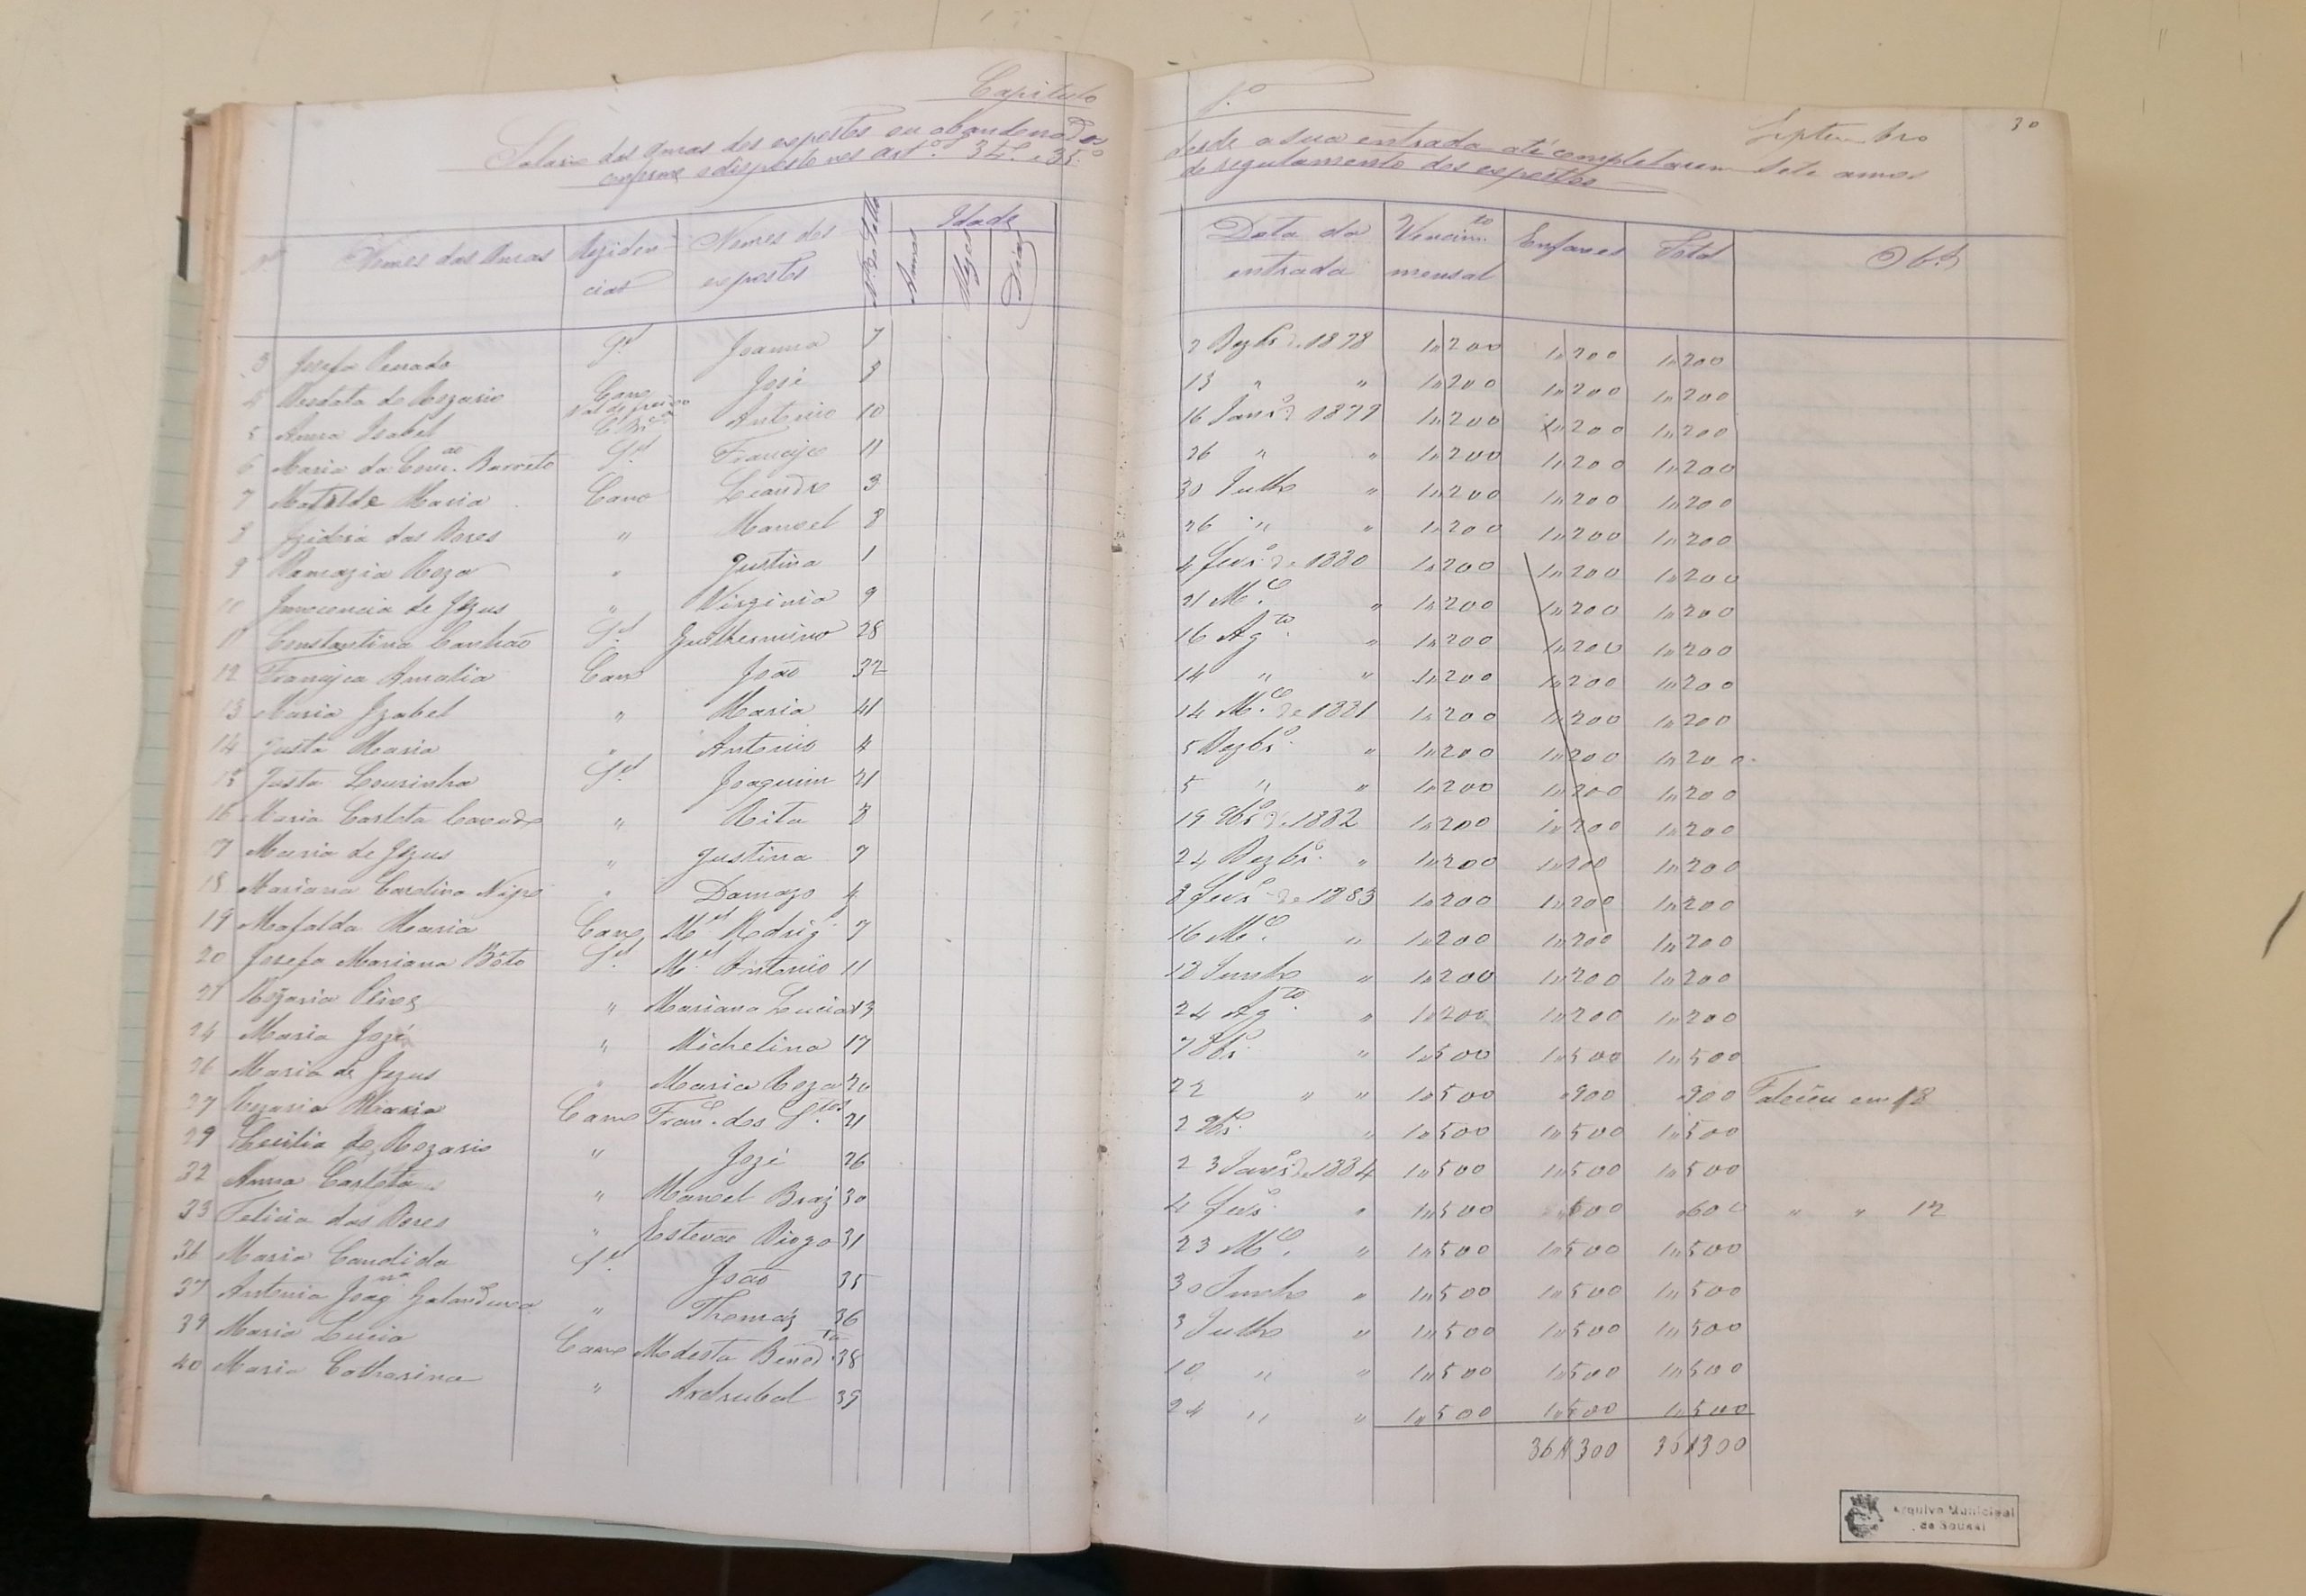 Capitulo 1.º
Septembro
30
Salario das amas dos expostos ou abandonados desde a sua entrada até completarem sete annos
conforme o disposto nos art.os 34.º e 35.º do regulamento dos expostos
Nº Nomes das Amas Residencias Nomes dos expostos Nº do Sello Idade Annos Mezes Dias Data da entrada Vencim.to mensal Enfaxes Total Obs
3 Josefa Penada S.el Joanna 7 2 Dezbr.o de 1878 1"200 1"200 1"200
4 do Rozario Cano José 8 13 " " 1"200 1"200 1"200
5 Anna Isabel Val de Freixo Antonio 10 16 Janr.o de 1879 1"200 1"200 1"200
6 Maria da Conc.ão Barreto S.el Francisco 11 26 " " 1"200 1"200 1"200
7 Matilde Maria Cano Leandro 3 30 Julho " 1"200 1"200 1"200
8 Izidora das Dores " Manoel 8 26 " " 1"200 1"200 1"200
9 Roza " Justina 1 4 Fevr.o de 1880 1"200 1"200 1"200
10 Innocencia de Jezus " Virginia 9 21 M.ço " 1"200 1"200 1"200
11 Constantina Canhão S.el Guilhermino 28 16 Ag.to " 1"200 1"200 1"200
12 Francisca Amalia Cano João 32 14 " " 1"200 1"200 1"200
13 Maria Izabel " Maria 41 14 M.ço de 1881 1"200 1"200 1"200
14 Justa Maria " Antonio 4 5 Dezbr.o " 1"200 1"200 1"200
15 Justa Lousinha S.el Joaquim 21 5 " " 1"200 1"200 1"200
16 Maria Carlota " Rita 8 19 9br.o de 1882 1"200 1"200 1"200
17 Maria de Jezus " Justina 7 24 Dezbr.o " 1"200 1"200 1"200
18 Mariana Carolina " Damazo 4 8 Fevr.o de 1883 1"200 1"200 1"200
19 Mafalda Maria Cano M.el Rodrig. 7 16 M.ço " 1"200 1"200 1"200
20 Josefa Mariana Bôto S.el M.el Antonio 11 12 Junho " 1"200 1"200 1"200
21 Rozaria Pires " Mariana Lucia 13 24 Ag.to " 1"200 1"200 1"200
24 Maria José " Michelina 17 7 8br.o " 1"500 1"500 1"500
26 Maria de Jezus " Maria Roza 20 22 " " 1"500 "900 "900 Faleceu em 18
27 Maria Cano Fran.co dos S.tos 21 2 9br.o " 1"500 1"500 1"500
29 Cecilia do Rozario " José 26 23 Janr.o de 1884 1"500 1"500 1"500
32 Anna Carlota " Manoel Braz 30 4 Fevr.o " 1"500 "600 "600 " " 12
33 Felicia das Dores " Estevão Diogo 31 23 M.ço " 1"500 1"500 1"500
36 Maria Candida S.el João 35 30 Junho " 1"500 1"500 1"500
37 Antonia Joaq.na Galandura " Thomaz 36 3 Julho " 1"500 1"500 1"500
39 Maria Lucia Cano Modesta Bened.ta 38 10 " " 1"500 1"500 1"500
40 Maria Catharina " Asdrubal 39 24 " " 1"500 1"500 1"500
36$300 36$300
Arquivo Municipal
de Sousel